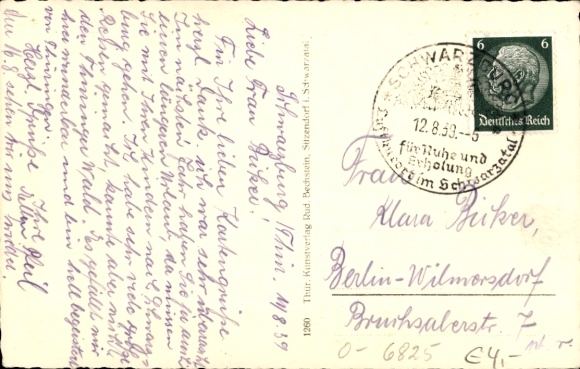 Schwarzburg/Thür. 11.8.39
Liebe Frau Büker!
Für Ihre lieben Kartengrüße
herzl. Dank, ich war sehr
Im nächsten Jahr haben Sie ja auch
einen längeren Urlaub, da müssen
Sie mit Ihren Kindern nach Schwarz-
burg gehen. Ich habe sehr viele
gemacht, kannte aber nicht
den Thüringer Wald. Es gefällt mir
hier wunderbar und bin hell begeistert
von Thüringen.
Herzl. Grüße Ihre
Keil
sehen wir uns wieder.
1260 Thür. Kunstverlag Rud. Bechstein, Sitzendorf i. Schwarzatal
SCHWARZBURG
12.8.39.
für Ruhe und
Erholung
Luftkurort im Schwarzatal
6 6
Deutsches Reich
Frau
Klara Büker,
Berlin-Wilmersdorf
Bruchsalerstr. 7
O- 6825 €4,-